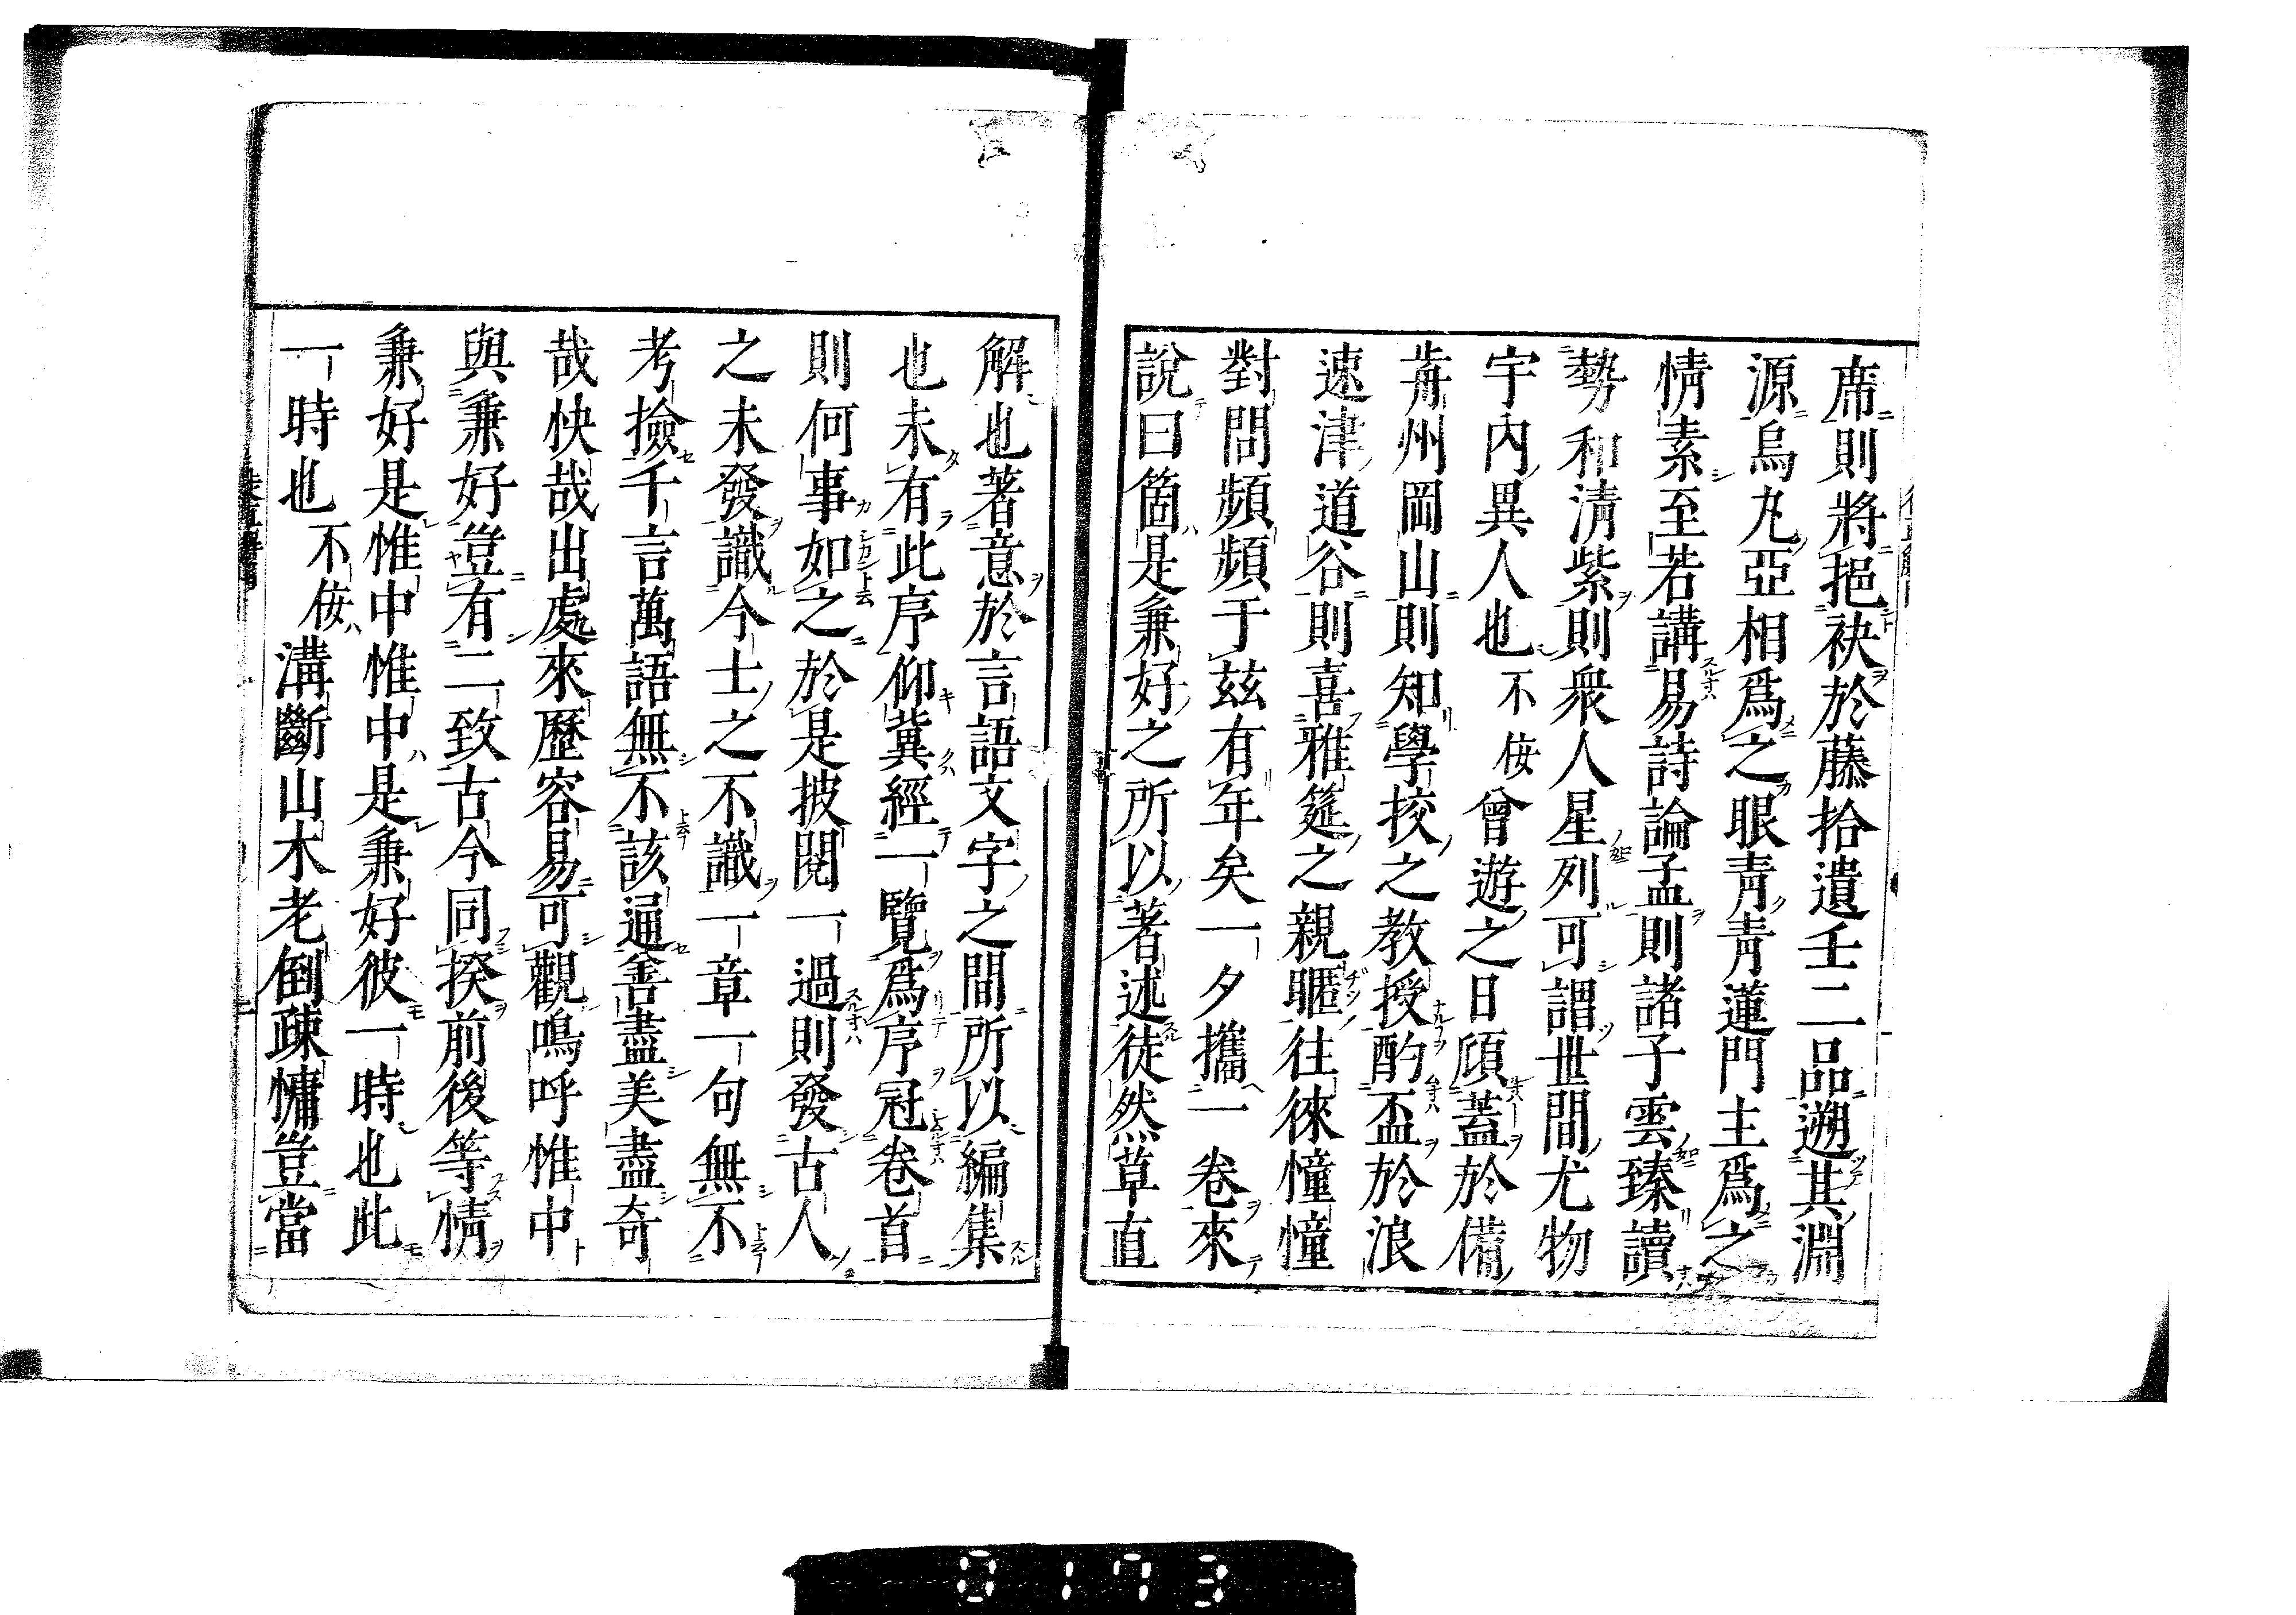 席則將挹袂於藤拾遺壬二品遡其淵
源烏丸亞相爲之眼青青蓮門主爲之
情素至若講易詩論孟則諸子雲臻讀
勢和清紫則衆人星列可謂世間尤物
宇內異人也不佞曾遊之日傾蓋於備
之前州岡山則知學校之教授酌盃於浪
速津道谷則喜雅筵之親暱往徠憧憧
對問頻頻于茲有年矣一夕攜一卷來
說曰箇是兼好之所以著述徒然草直
解也著意於言語文字之間所以編集
也未有此序仰冀經一覽爲序冠卷首
則何事如之於是披閱一過則發古人
之未發識今士之不識一章一句無不
考撿千言萬語無不該逼善盡美盡奇
哉快哉出處來歷容易可觀嗚呼惟中
與兼好豈有二致古今同揆前後等情
兼好是惟中惟中是兼好彼一時也此
一時也不佞溝斷山木老倒疎慵豈當
0173